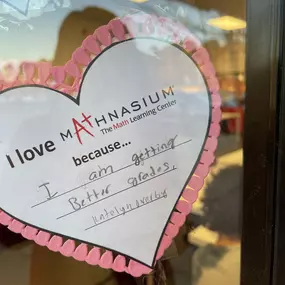 I love MATHNASIUM®
The Math Learning Center
because...
I am getting
Better grades.